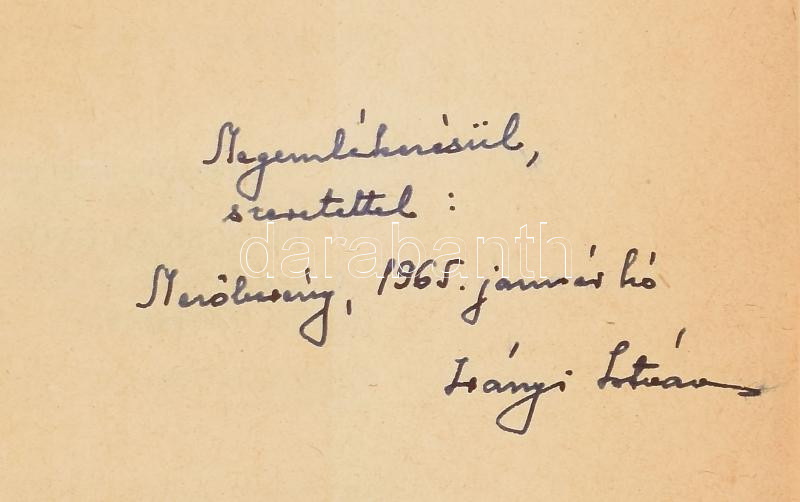 Megemlékezésül,
szeretettel :
darabanth
Mezőberény, 1965. január hó
Irányi István